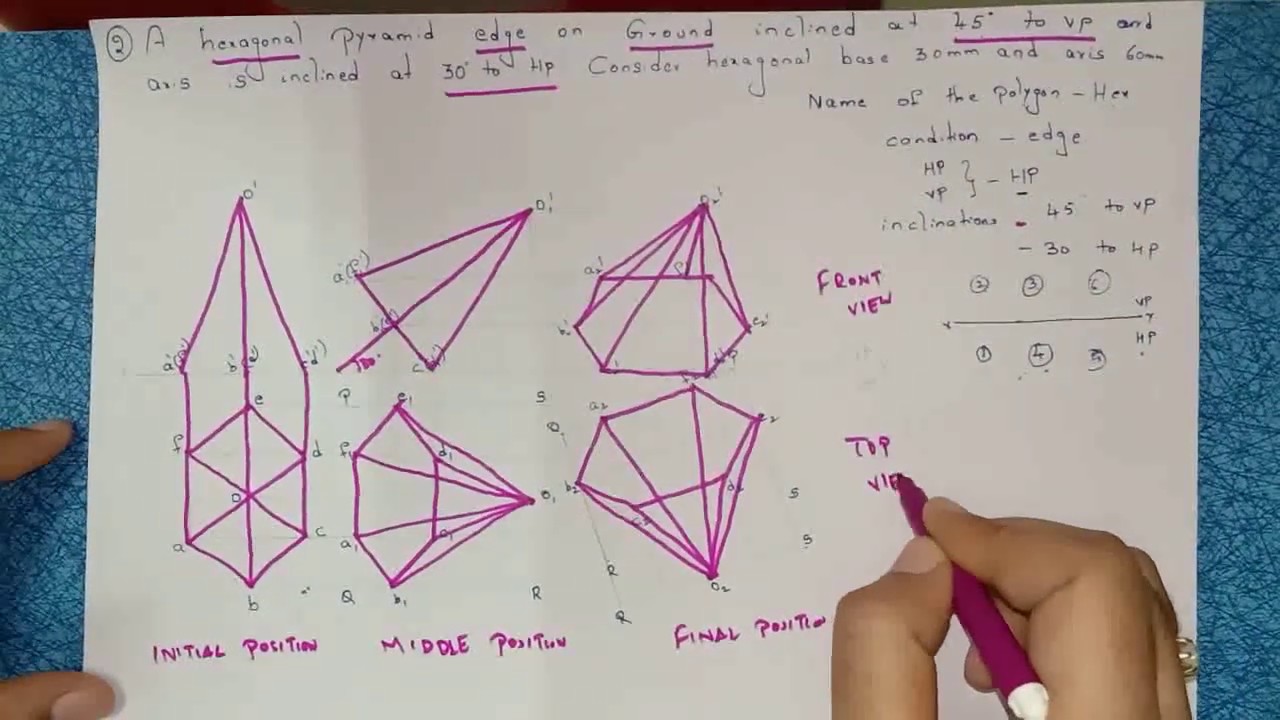 ② A hexagonal Pyramid edge on Ground inclined at 45° to VP and
axis is inclined at 30° to HP Consider hexagonal base 30mm and axis 60mm
Name of the Polygon - Hex
condition - edge
HP
VP } - HP
inclinations - 45 to VP
- 30 to HP
② ③ ⑥
VP
X Y
HP
① ④ 5
FRONT
VIEW
TOP
VIE
O'
a' b' d'
e
f d
o
a c
b
O1'
a'(f')
30°
P S
e1
f1 d1
O1
a1
Q b1 R
O2'
a2'
b2' e2'
a2 e2
b2 d2
c2
O2
S
S
R
R
INITIAL POSITION MIDDLE POSITION FINAL POSITION